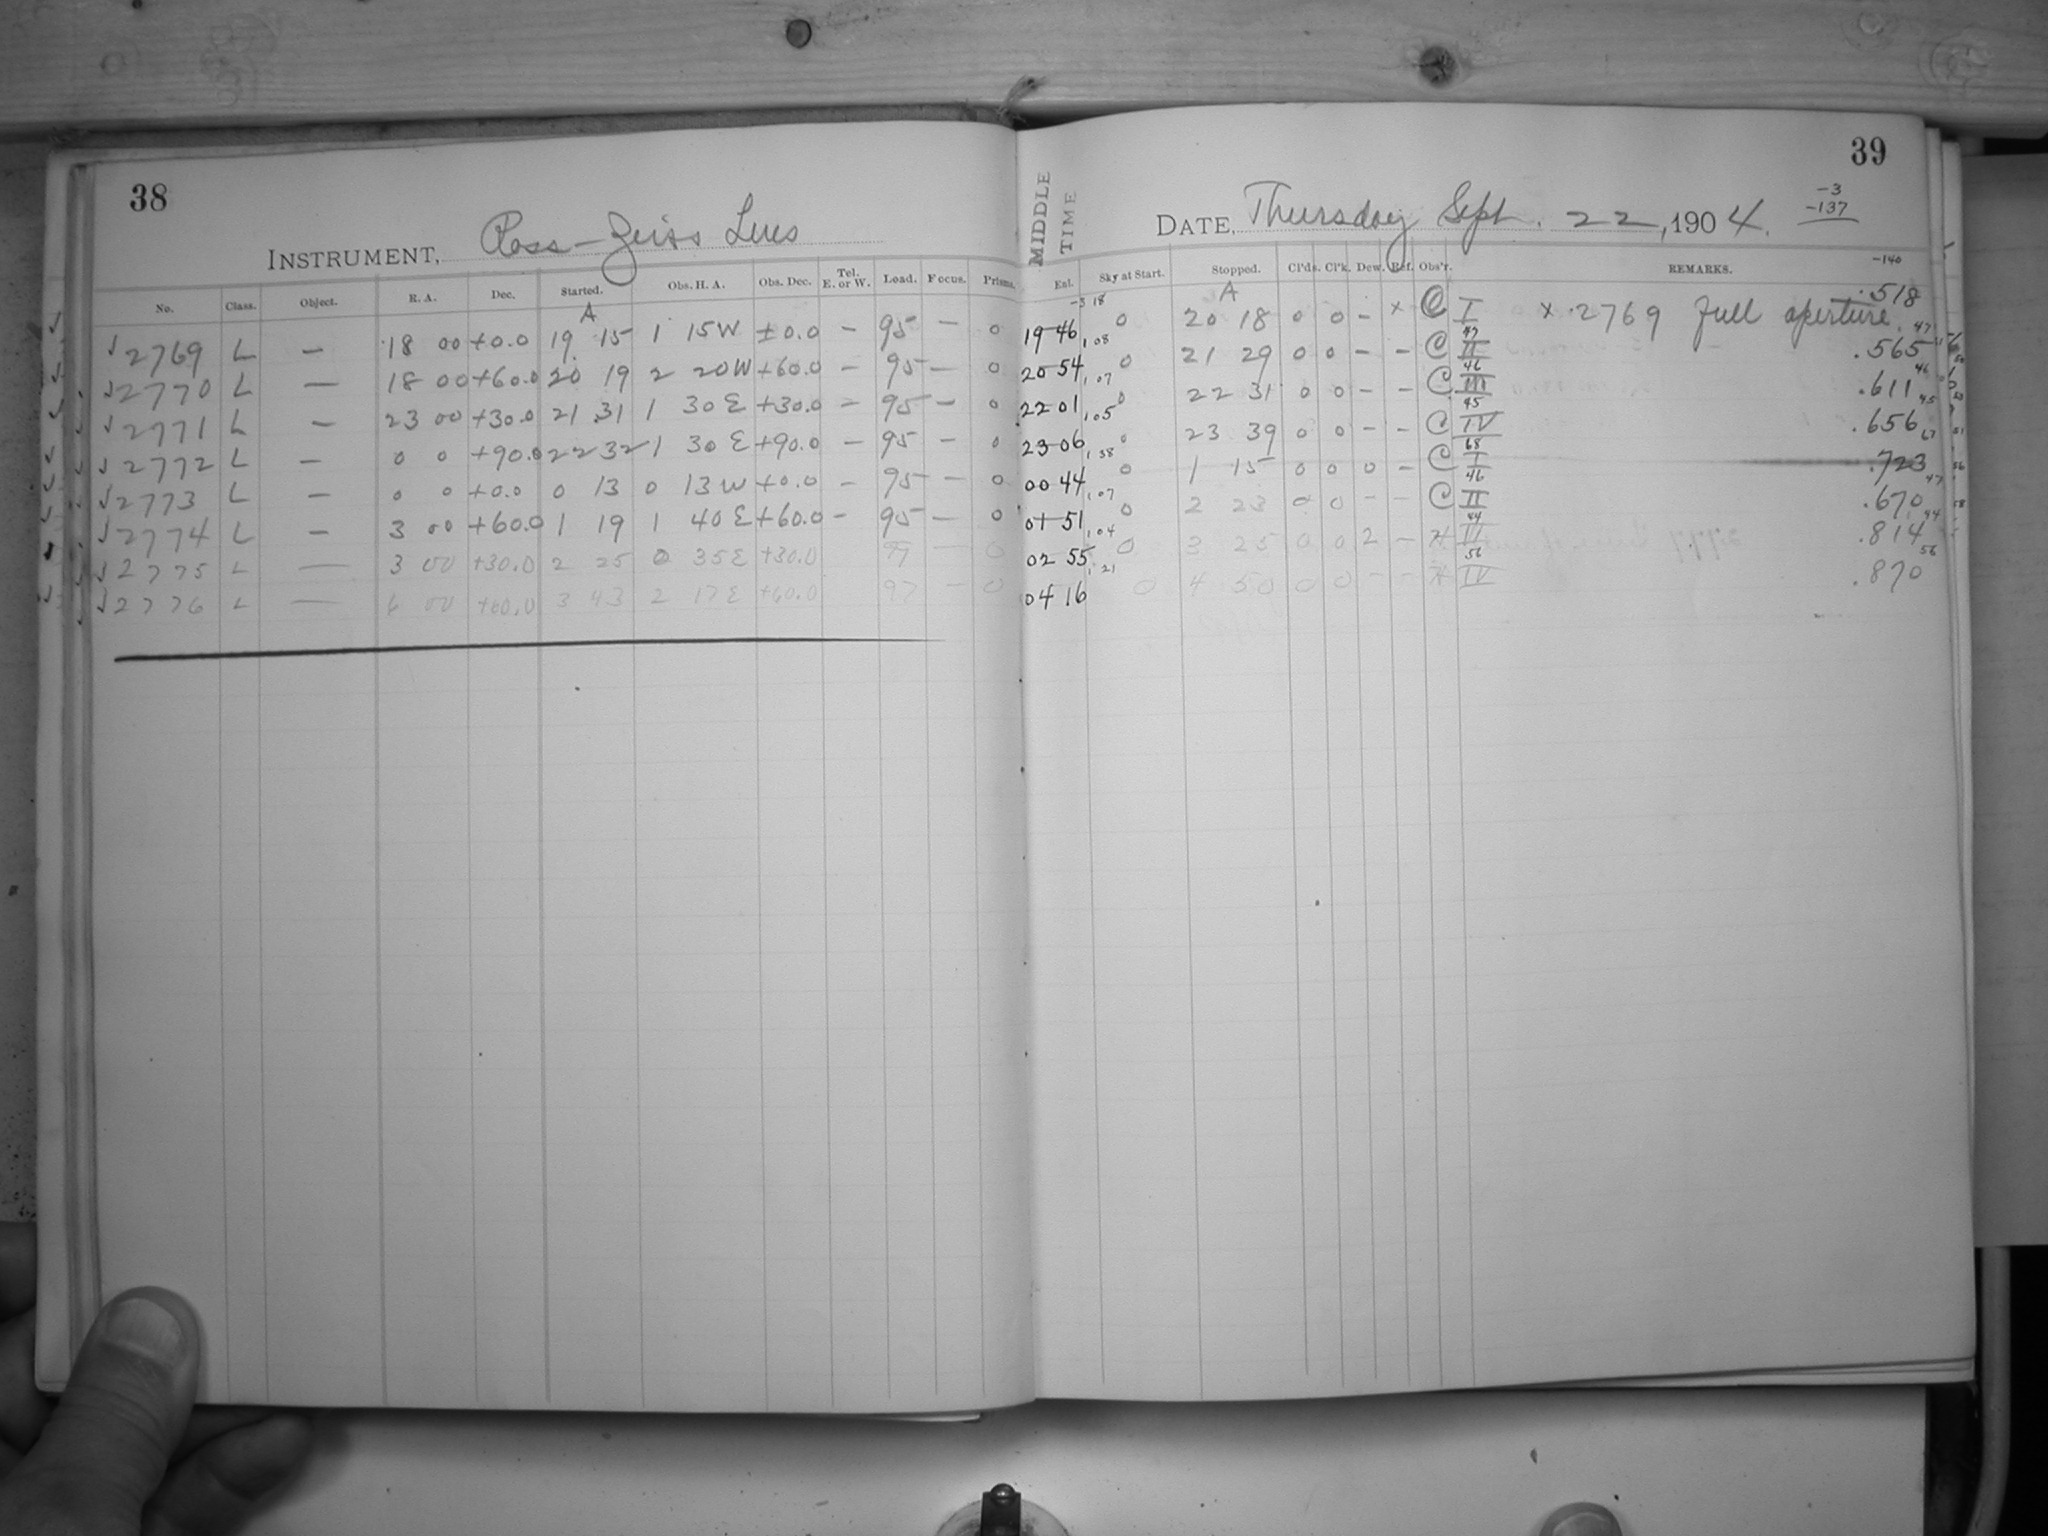 38
INSTRUMENT, Ross-Zeiss Lens
No. Class. Object. R. A. Dec. Started. Obs. H. A. Obs. Dec. Tel. E. or W. Load. Focus. Prisms.
A
√ 2769 L — 18 00 +0.0 19 15 1 15W ±0.0 — 95 — 0
√ 2770 L — 18 00 +60.0 20 19 2 20W +60.0 — 95 — 0
√ 2771 L — 23 00 +30.0 21 31 1 30E +30.0 — 95 — 0
√ 2772 L — 0 0 +90.0 22 32 1 30E +90.0 — 95 — 0
√ 2773 L — 0 0 +0.0 0 13 0 13W +0.0 — 95 — 0
√ 2774 L — 3 00 +60.0 1 19 1 40E +60.0 — 95 — 0
√ 2775 L — 3 00 +30.0 2 25 0 35E +30.0 — 0
√ 2776 L — 6 00 +60.0 3 43 2 17E +60.0 97 — 0
39
MIDDLE TIME
DATE, Thursday Sept. 22, 1904.
-3
-137
-140
Ext. Sky at Start. Stopped. Cl'ds. Cl'k. Dew. Ref. Obs'r. REMARKS.
-3 18 A .518
19 46 0 20 18 0 0 — x C I x 2769 full aperture. 47
1.08 47
20 54 0 21 29 0 0 — — C II .565 46
1.07 46
22 01 0 22 31 0 0 — — C III .611 45
1.05 45
23 06 0 23 39 0 0 — — C IV .656 67
1.38 68
00 44 0 1 15 0 0 0 — C I .723 47
1.07 46
01 51 0 2 23 0 0 — — C II .670 44
1.04 44
02 55 0 3 25 0 0 2 — III .814 56
1.21 56
04 16 0 4 50 0 0 — — IV .870